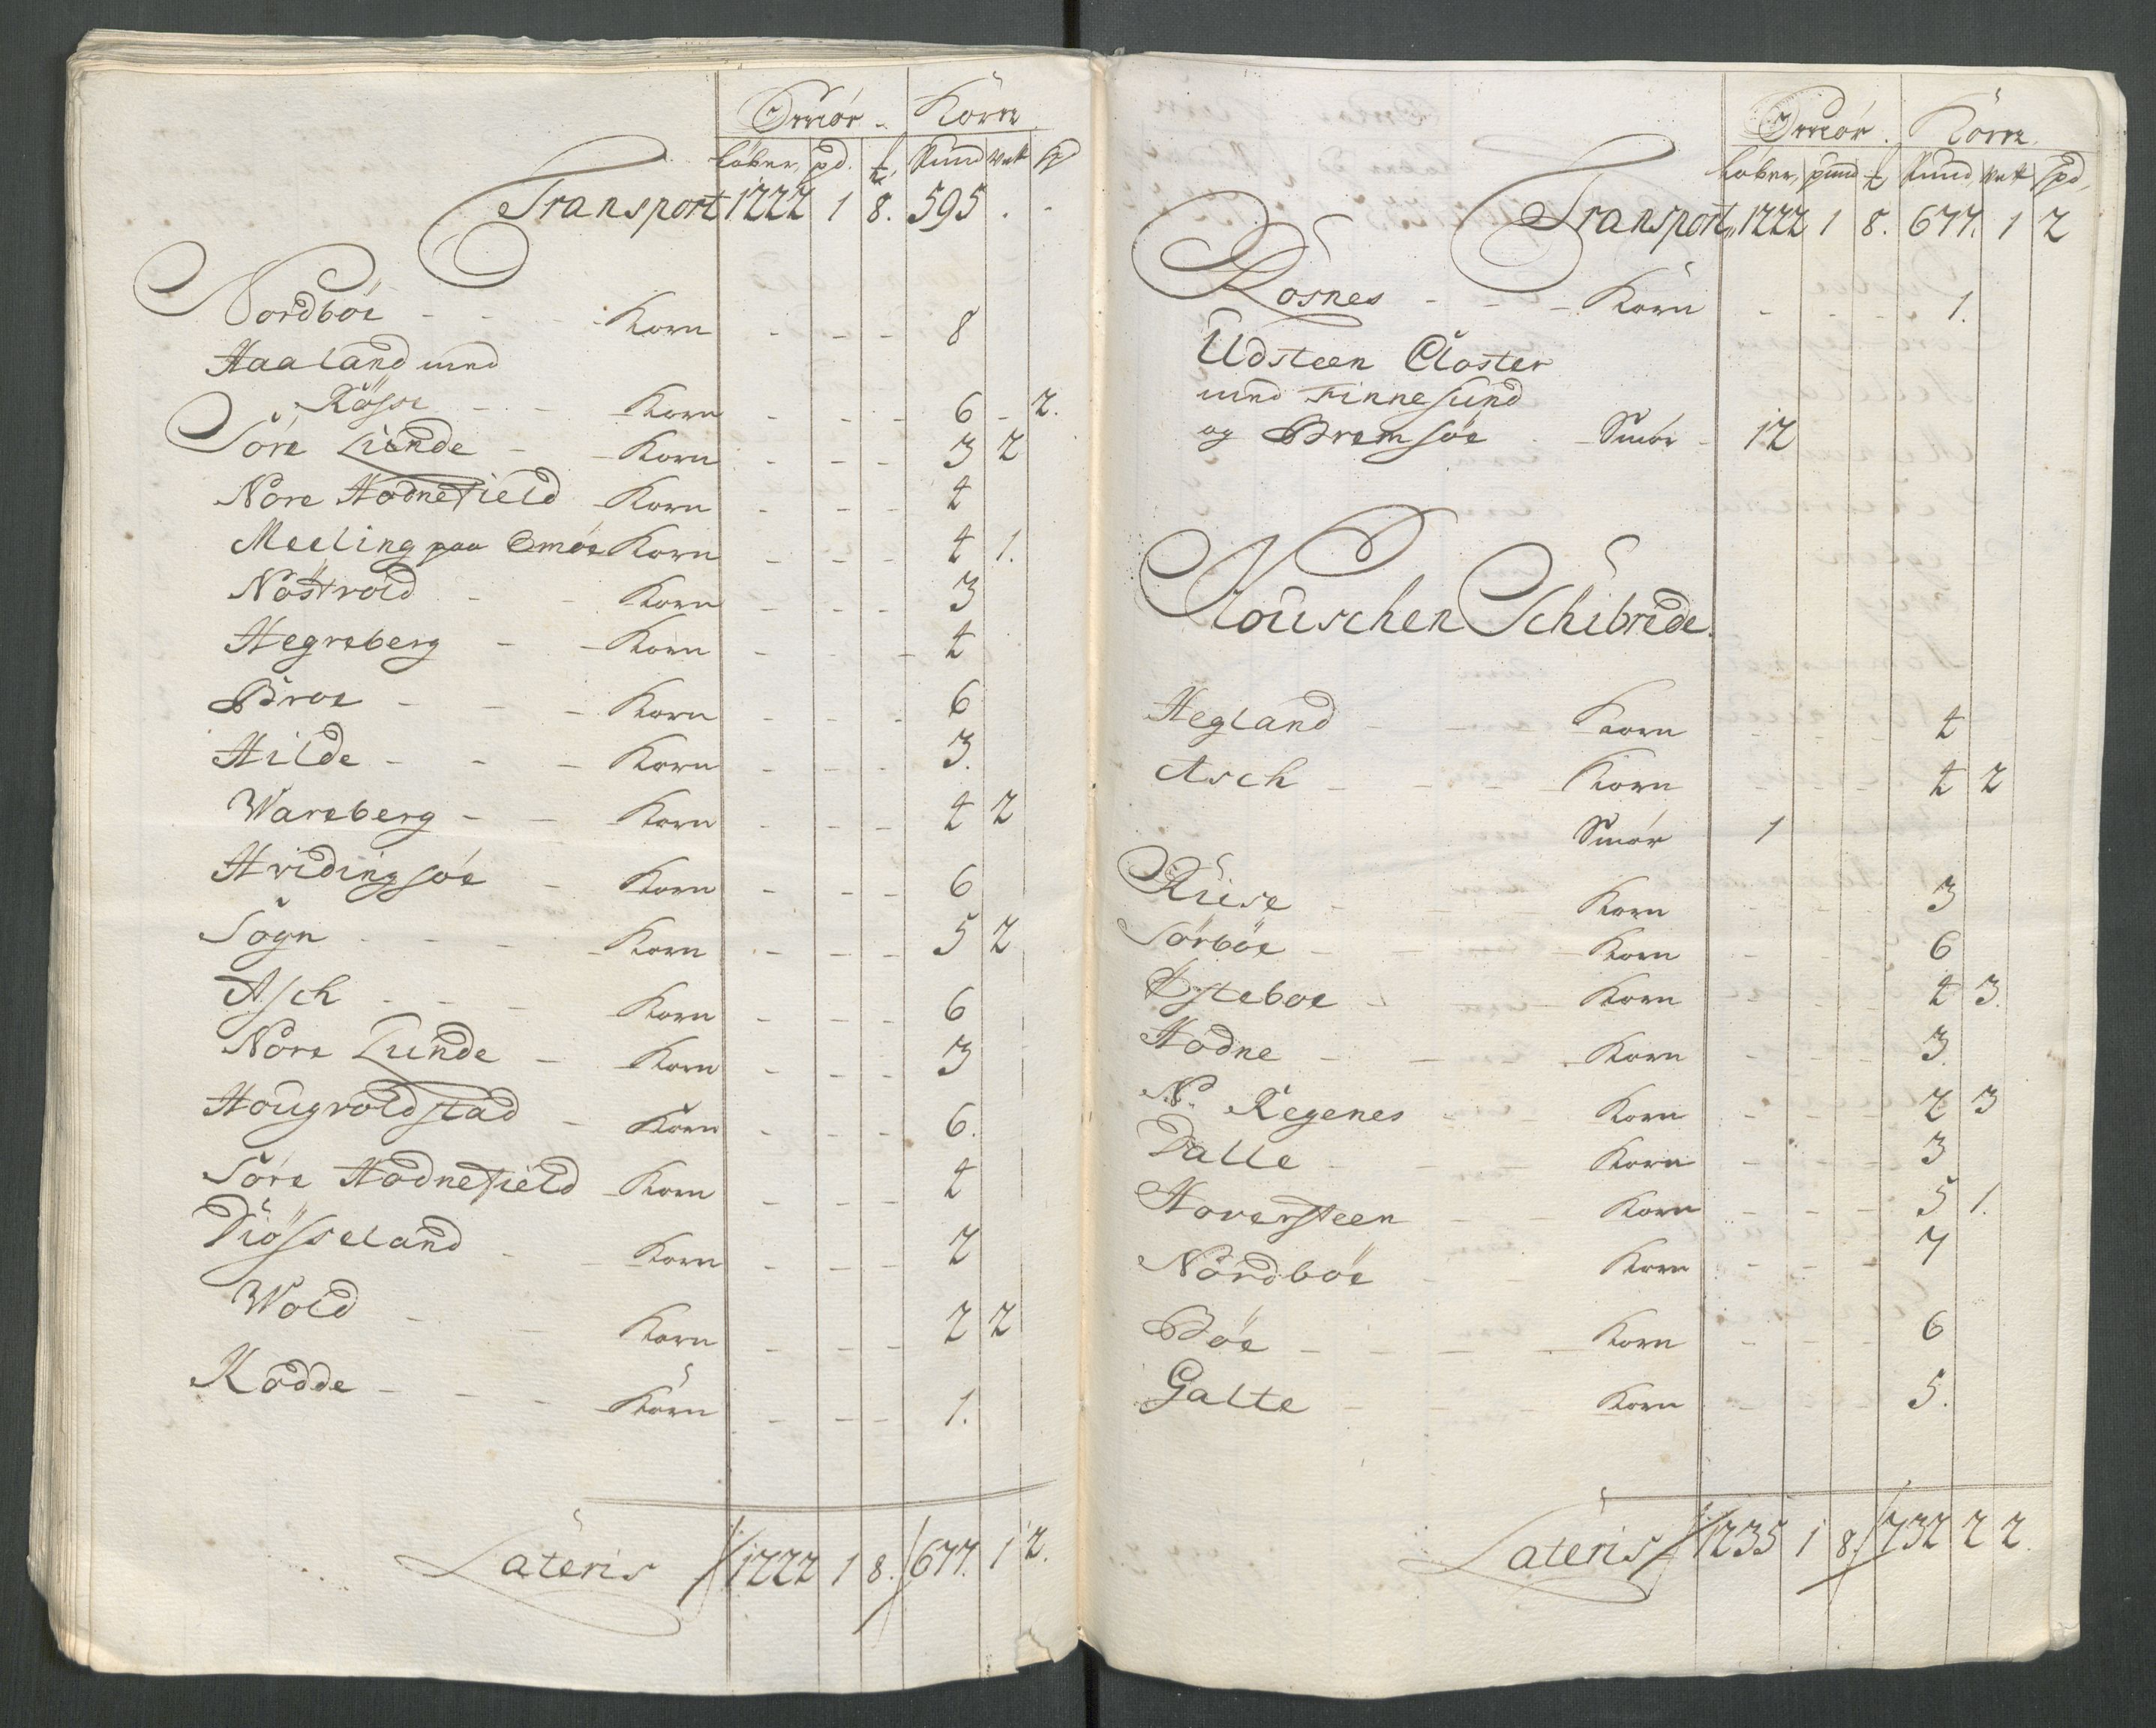 Smør Korn
Løber, pd. ℔ Pund Vet Spd
Transport 1222 1 8. 595 . -
Nordbøe - - - Korn - - - 8
Haaland med
Røsse - - Korn - - - 6 - 2.
Søre Lunde - Korn - - - 3 2
Nore Hodnefield Korn - - - 4
Meeling paa Omøe Korn - - - 4 1.
Nøstvold - - Korn - - - 3
Hegreberg - Korn - - - 4
Broe - - - Korn - - - 6
Hilde - - - Korn - - - 3.
Wareberg - - Korn - - - 4 2
Hvidingsøe - Korn - - - 6
Sogn - - - Korn - - - 5 2
Asch - - - Korn - - - 6
Nore Lunde - Korn - - - 3
Hougvoldstad - Korn - - - 6.
Søre Hodnefield Korn - - - 4
Diøsseland - Korn - - - 2
Wold - - Korn - - - 2 2
Kodde - - - Korn - - - 1.
Lateris 1222 1 8. 677. 1 2.
Smør. Korn.
Løber, pund ℔ Pund, Vet Spd,
Transport, 1222 1 8. 677. 1 2
Rosnes - - - Korn - - - 1.
Udsteen Closter
med Finnesund
og Bremsøe - Smør - 12
Mouschen Schibrede.
Hegland - - Korn - - - 4
Asch - - - Korn - - - 4 2
Smør 1
Riise - - Korn - - - 3
Sørbøe - - - Korn - - - 6
Østeboe - - Korn - - - 4 3.
Hodne - - - Korn - - - 3.
N: Regenes - - Korn - - - 2 3
Dalle - - - Korn - - - 3
Haversteen - - Korn - - - 5 1.
Nordbøe - - Korn - - - 7
Bøe - - - - Korn - - - 6
Galte - - - Korn - - - 5.
Lateris 1235 1 8. 732 2 2.